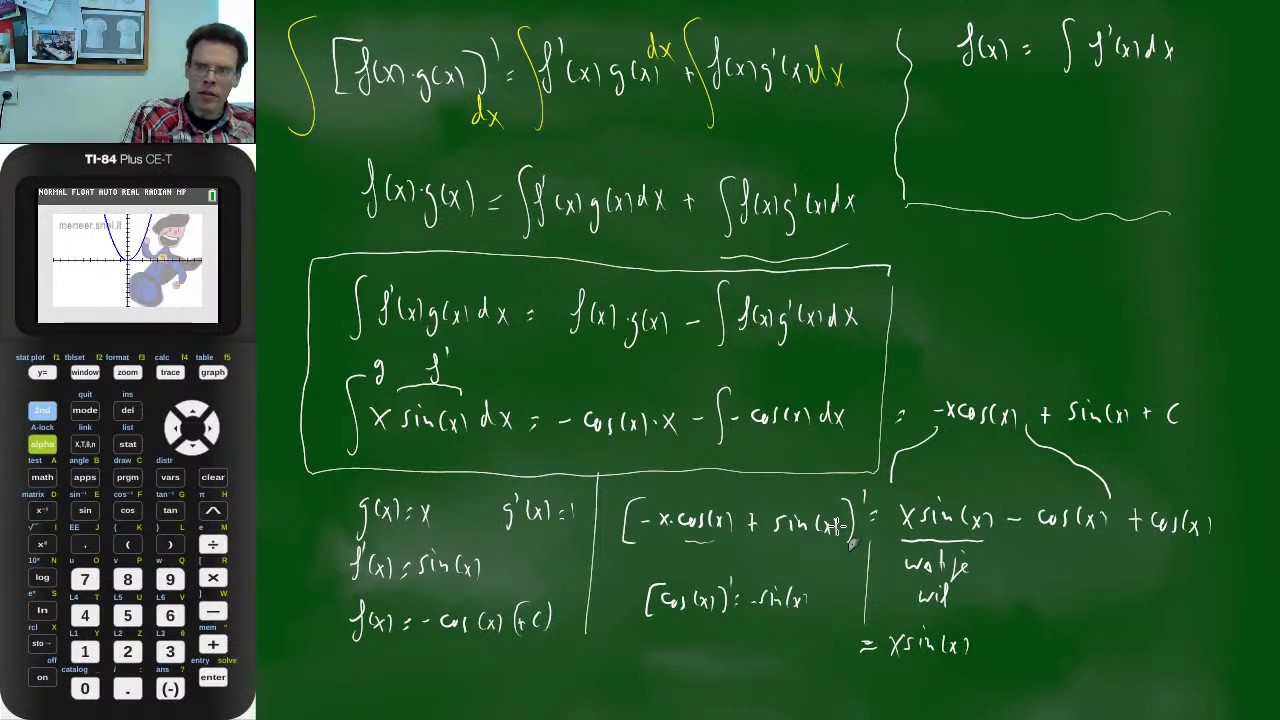 ∫ [f(x)·g(x)]' dx = ∫ f'(x) g(x) dx + ∫ f(x) g'(x) dx
f(x) = ∫ f'(x) dx
f(x)·g(x) = ∫ f'(x) g(x) dx + ∫ f(x) g'(x) dx
∫ f'(x) g(x) dx = f(x)·g(x) - ∫ f(x) g'(x) dx
g f'
∫ x sin(x) dx = - cos(x)·x - ∫ - cos(x) dx = -x cos(x) + sin(x) + C
g(x) = x g'(x) = 1
f'(x) = sin(x)
f(x) = - cos(x) (+ C)
[-x·cos(x) + sin(x)]' = x sin(x) - cos(x) + cos(x)
wat je
wil
[cos(x)]' = -sin(x)
= x sin(x)
TI-84 Plus CE-T
NORMAL FLOAT AUTO REAL RADIAN MP
meneer.snel.il
stat plot f1 tblset f2 format f3 calc f4 table f5
y= window zoom trace graph
quit ins
2nd mode del
A-lock link list
alpha X,T,θ,n stat
test A angle B draw C distr
math apps prgm vars clear
matrix D sin⁻¹ E cos⁻¹ F tan⁻¹ G π H
x⁻¹ sin cos tan ^
√ I EE J { K } L e M
x² , ( ) ÷
10ˣ N u O v P w Q [ R
log 7 8 9 ×
eˣ S L4 T L5 U L6 V ] W
ln 4 5 6 −
rcl X L1 Y L2 Z L3 θ mem "
sto→ 1 2 3 +
off catalog i : ans ? entry solve
on 0 . (-) enter